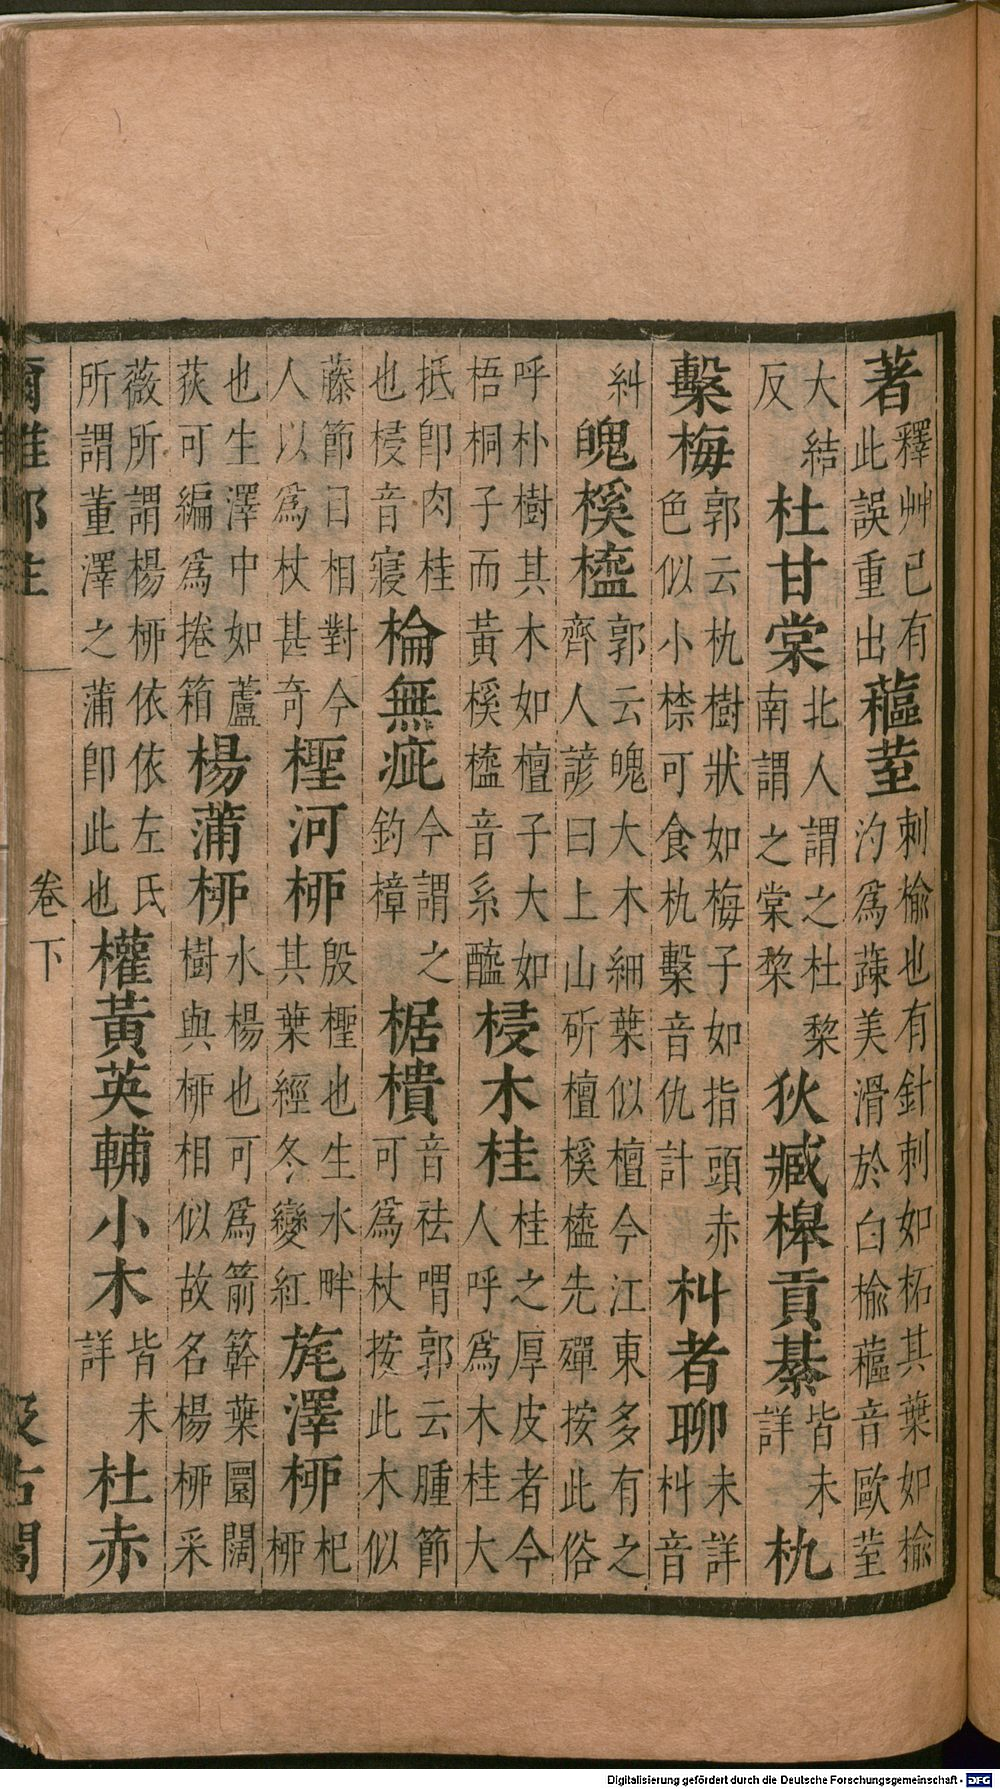 著釋艸已有此誤重出蓲荎刺榆也有針刺如柘其葉如榆汋爲蔬美滑於白榆蓲音歐荎
大結反杜甘棠北人謂之杜黎南謂之棠棃狄臧槔貢綦皆未詳朹
繫梅郭云朹樹狀如梅子如指頭赤色似小㮈可食朹繫音仇計朻者聊未詳朻音
糾魄榽橀郭云魄大木細葉似檀今江東多有之齊人諺曰上山斫檀榽橀先殫按此俗
呼朴樹其木如檀子大如梧桐子而黃榽橀音系醯梫木桂桂之厚皮者今人呼爲木桂大
抵卽肉桂也梫音寢棆無疵今謂之釣樟椐樻音祛喟郭云腫節可爲杖按此木似
藤節目相對今人以爲杖甚奇檉河桺殷檉也生水畔其葉經冬變紅旄澤桺杞桺
也生澤中如蘆荻可編爲捲箱楊蒲桺水楊也可爲箭簳葉圓闊樹與桺相似故名楊桺采
薇所謂楊桺依依左氏所謂董澤之蒲卽此也權黃英輔小木皆未詳杜赤
爾雅鄭注 卷下 汲古閣
Digitalisierung gefördert durch die Deutsche Forschungsgemeinschaft - DFG